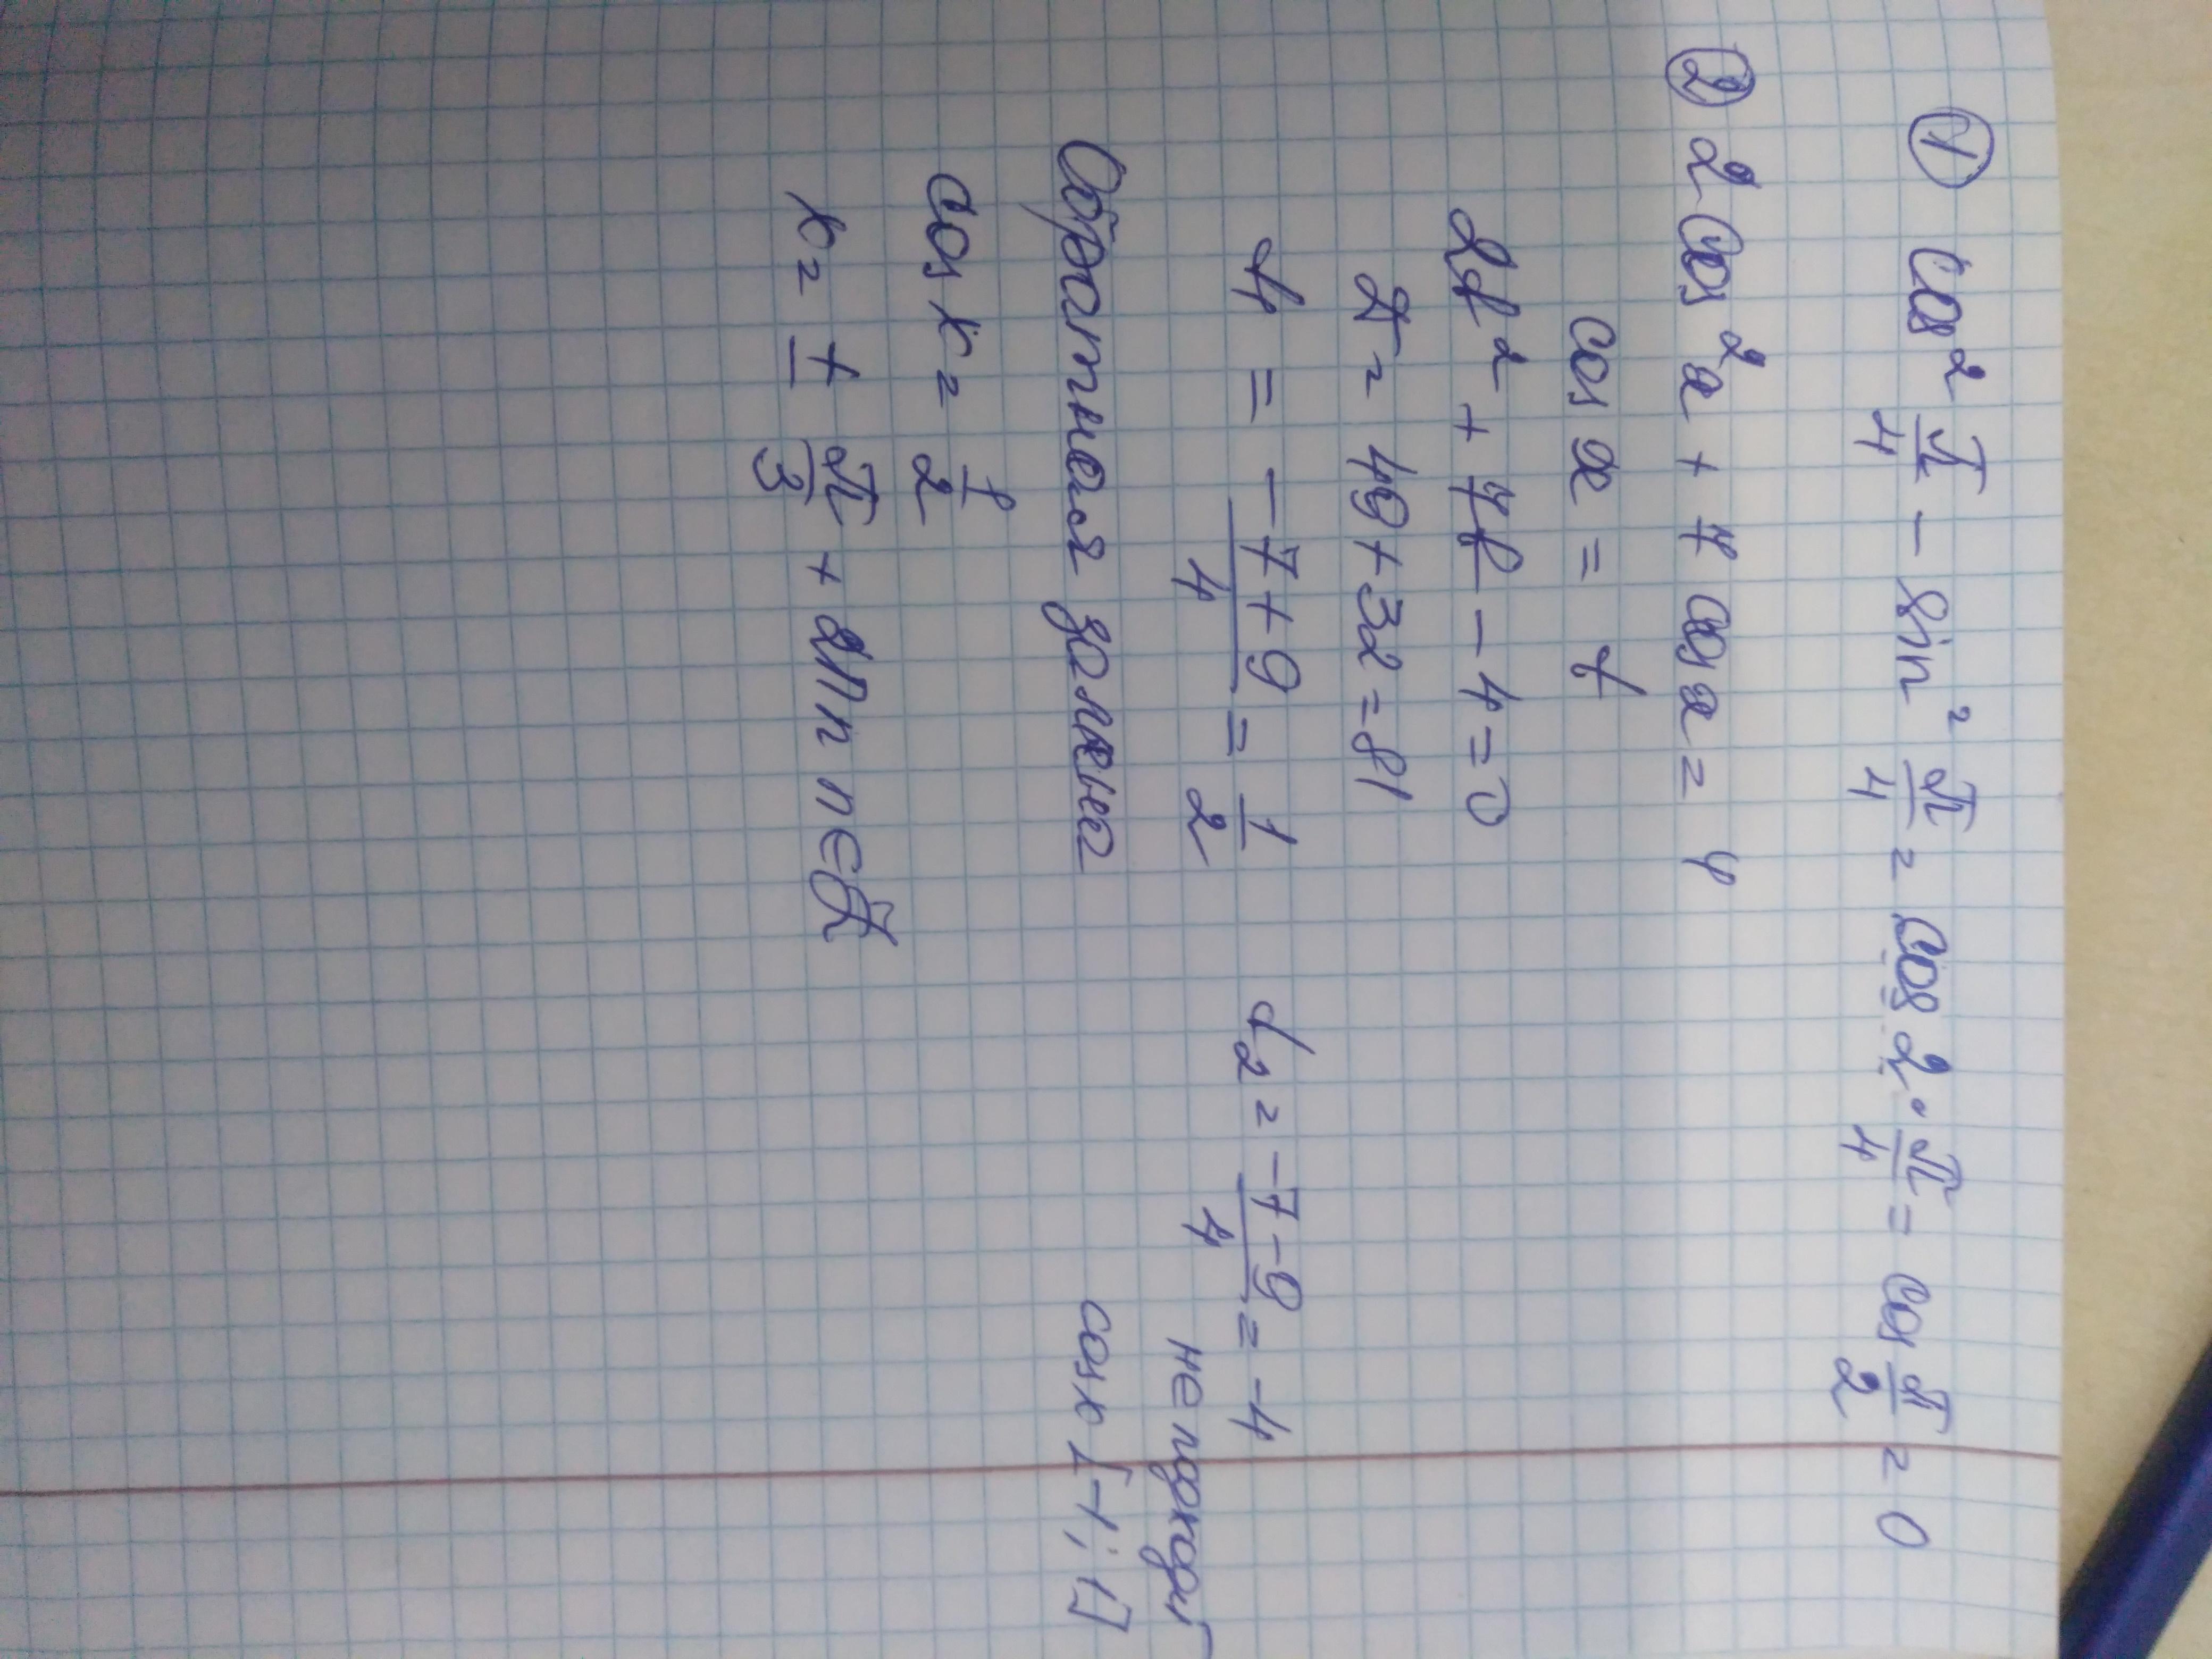 ① cos² π/4 - sin² π/4 = cos 2 · π/4 = cos π/2 = 0
② 2 cos² x + 7 cos x = 4
cos x = t
2t² + 7t - 4 = 0
D = 49 + 32 = 81
t₁ = (-7+9)/4 = 1/2 t₂ = (-7-9)/4 = -4
не подходит
Обратная замена cos x [-1; 1]
cos x = 1/2
x = ± π/3 + 2πn n∈Z